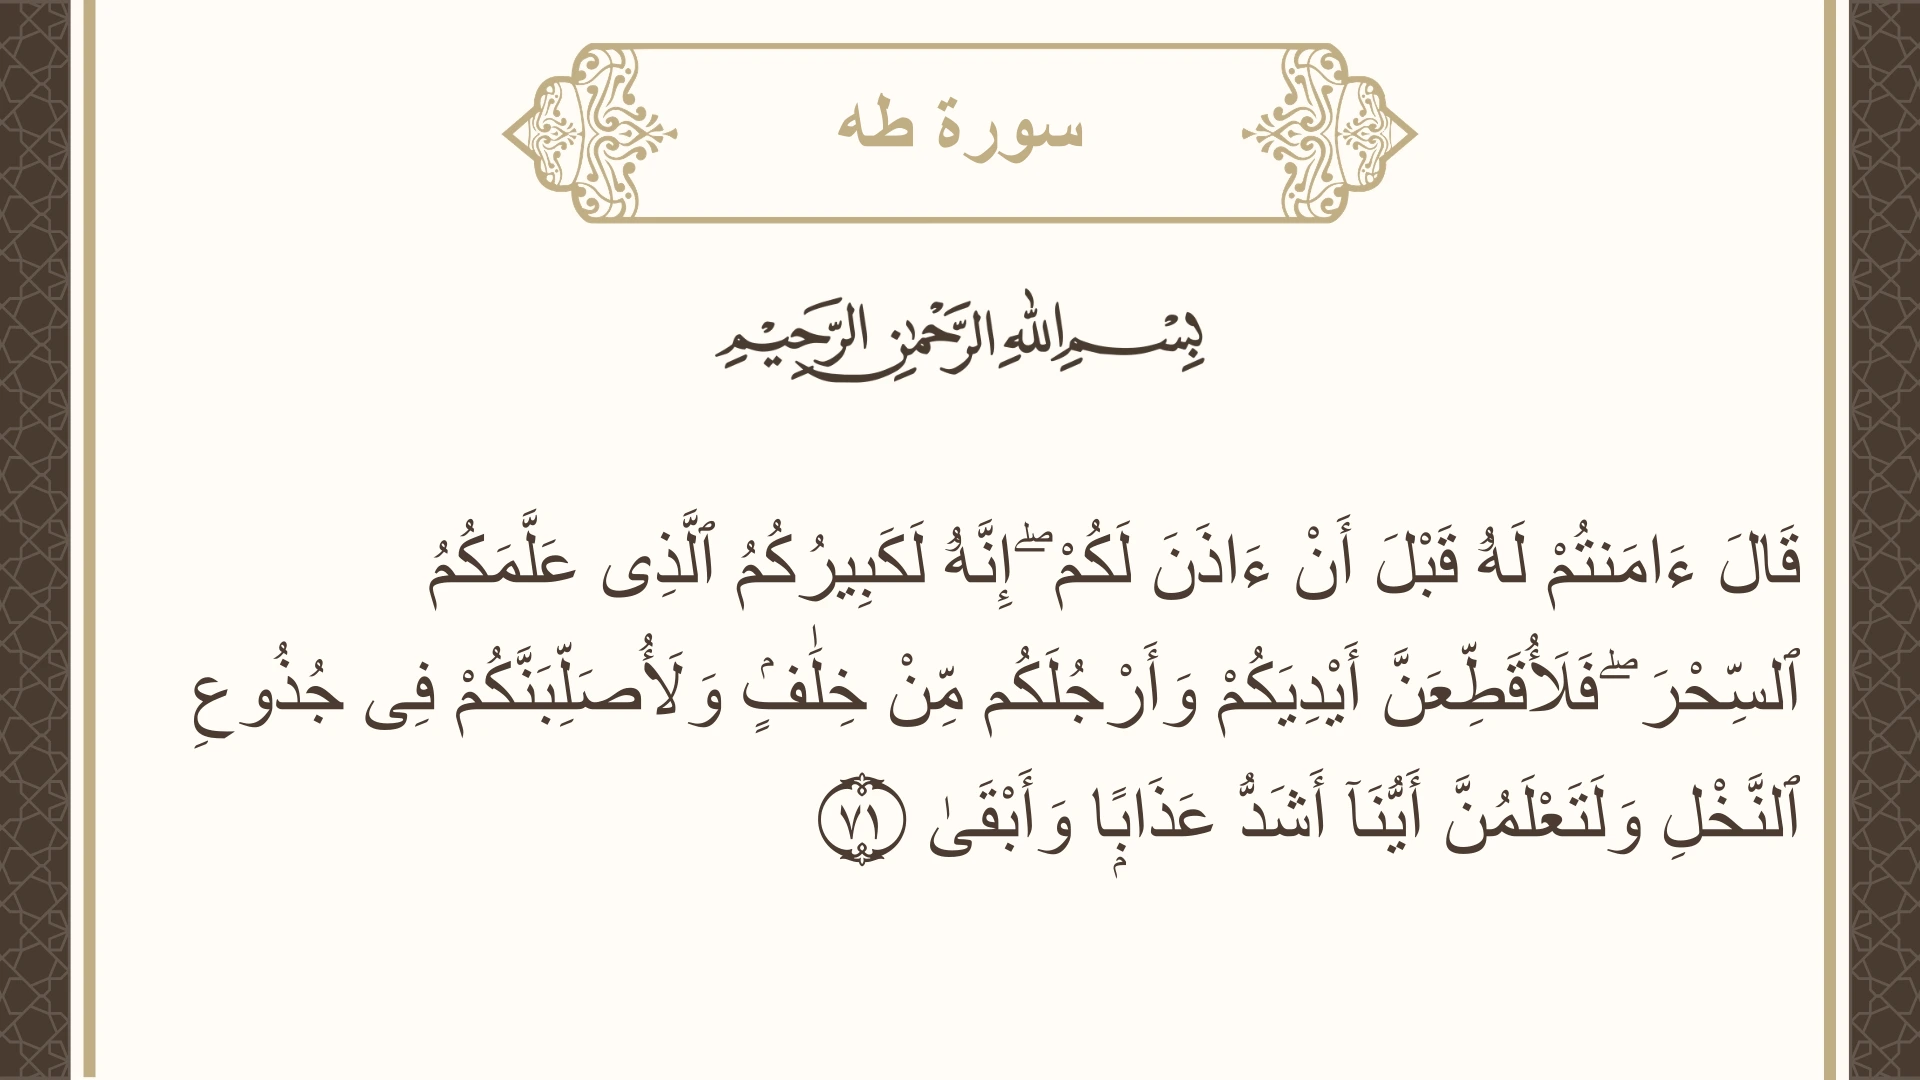 سورة طه
بِسْمِ اللهِ الرَّحْمٰنِ الرَّحِيْمِ
قَالَ ءَامَنتُمْ لَهُۥ قَبْلَ أَنْ ءَاذَنَ لَكُمْ ۖ إِنَّهُۥ لَكَبِيرُكُمُ ٱلَّذِى عَلَّمَكُمُ
ٱلسِّحْرَ ۖ فَلَأُقَطِّعَنَّ أَيْدِيَكُمْ وَأَرْجُلَكُم مِّنْ خِلَٰفٍۢ وَلَأُصَلِّبَنَّكُمْ فِى جُذُوعِ
ٱلنَّخْلِ وَلَتَعْلَمُنَّ أَيُّنَآ أَشَدُّ عَذَابًۭا وَأَبْقَىٰ ٧١